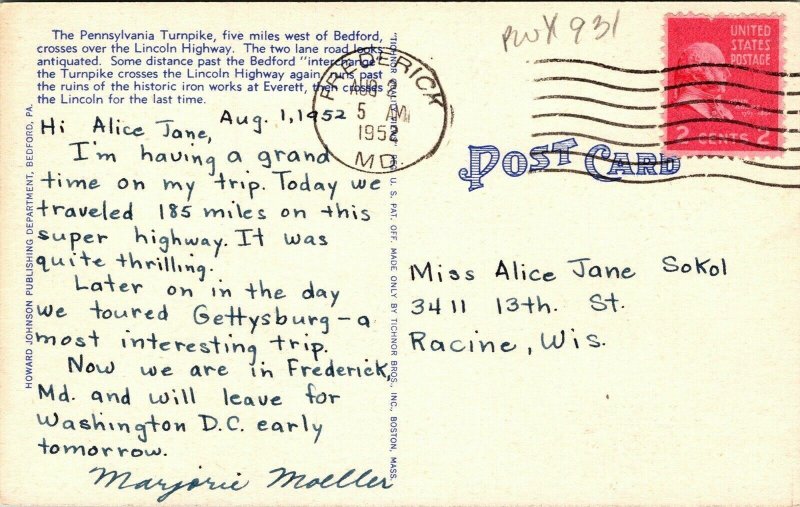 The Pennsylvania Turnpike, five miles west of Bedford,
crosses over the Lincoln Highway. The two lane road looks
antiquated. Some distance past the Bedford "interchange"
the Turnpike crosses the Lincoln Highway again, runs past
the ruins of the historic iron works at Everett, then crosses
the Lincoln for the last time.
Aug. 1, 1952
Hi Alice Jane,
I'm having a grand
time on my trip. Today we
traveled 185 miles on this
super highway. It was
quite thrilling.
Later on in the day
we toured Gettysburg - a
most interesting trip.
Now we are in Frederick,
Md. and will leave for
Washington D.C. early
tomorrow.
Marjorie Moeller
HOWARD JOHNSON PUBLISHING DEPARTMENT, BEDFORD, PA.
"TICHNOR REG. U. S. PAT. OFF. MADE ONLY BY TICHNOR BROS., INC., BOSTON, MASS.
FREDERICK
AUG 2
5 AM
1952
MD.
931
UNITED
STATES
POSTAGE
2 CENTS 2
POST CARD
Miss Alice Jane Sokol
3411 13th. St.
Racine, Wis.